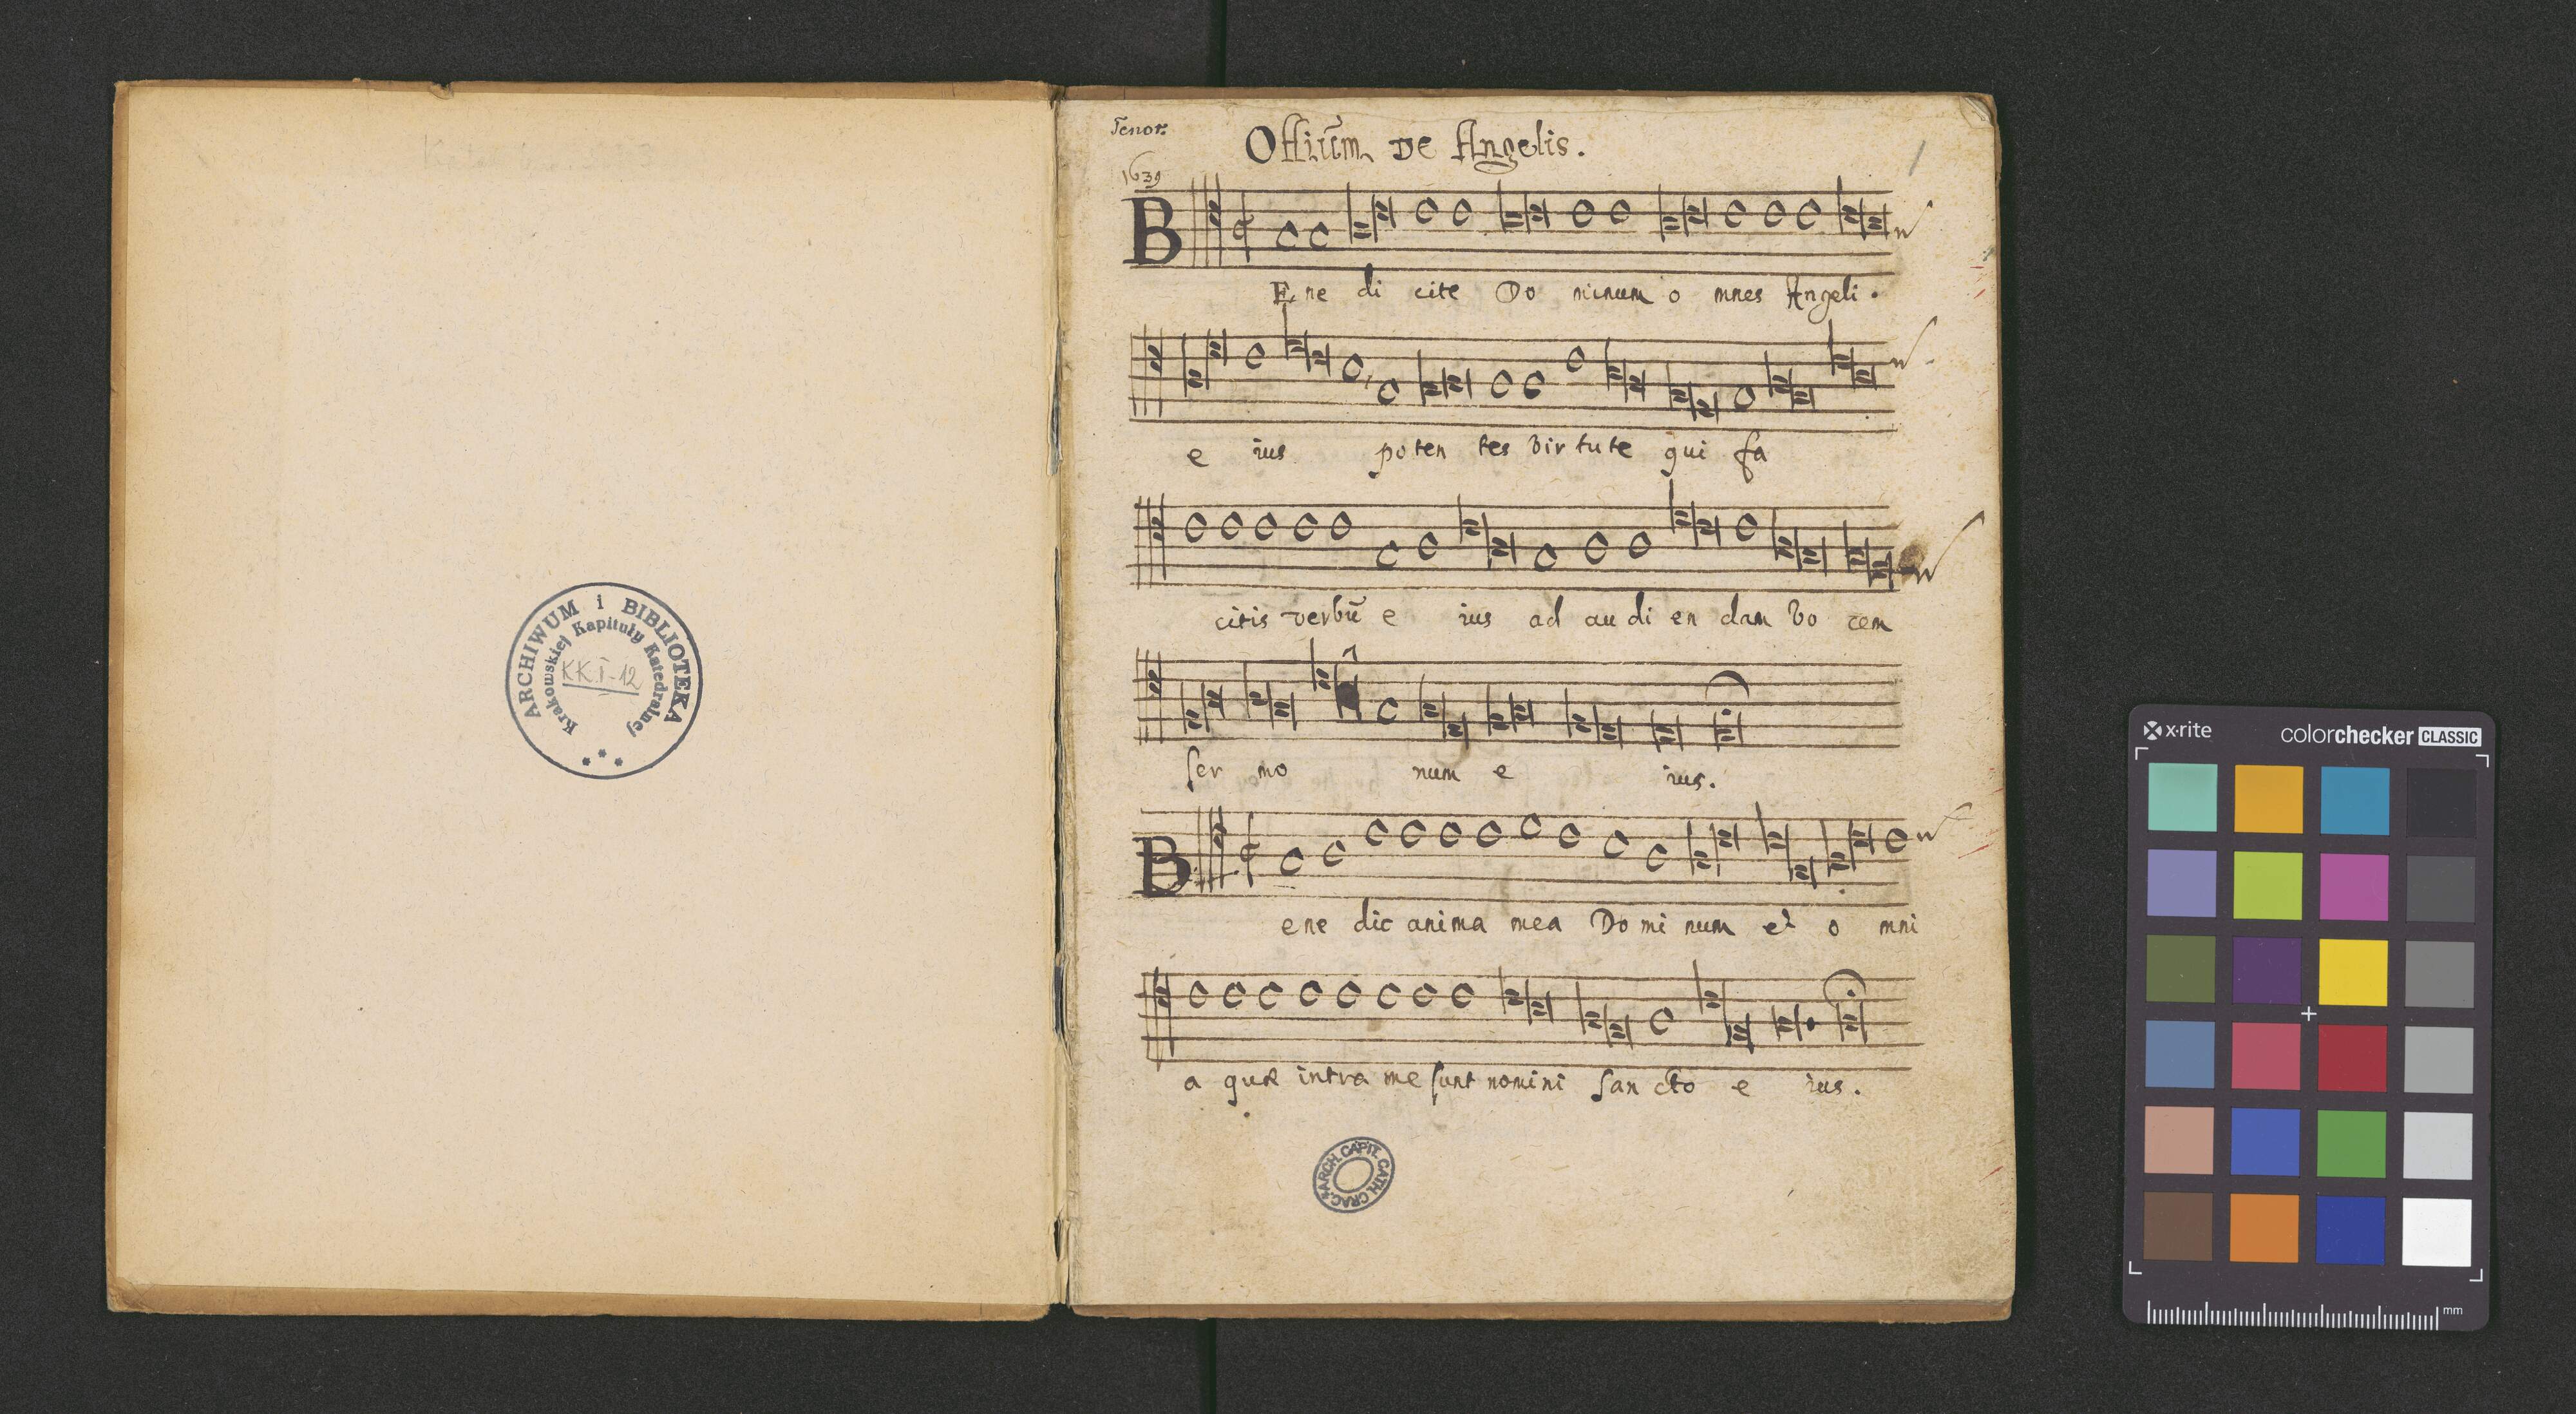 ARCHIWUM i BIBLIOTEKA
Krakowskiej Kapituły Katedralnej
KK.I-12
Tenor.
1
Offiiũm De Angelis.
1639
B
E ne di cite Do minum o mnes Angeli.
e ius poten tes virtute qui fa
citis verbũ e ius ad au di en dam vo cem
ser mo num e ius.
B
ene dic anima mea Do mi num et o mni
a quæ intra me sunt nomini san cto e ius.
ARCH. CAPIT. CATH. CRAC.
x-rite colorchecker CLASSIC
mm